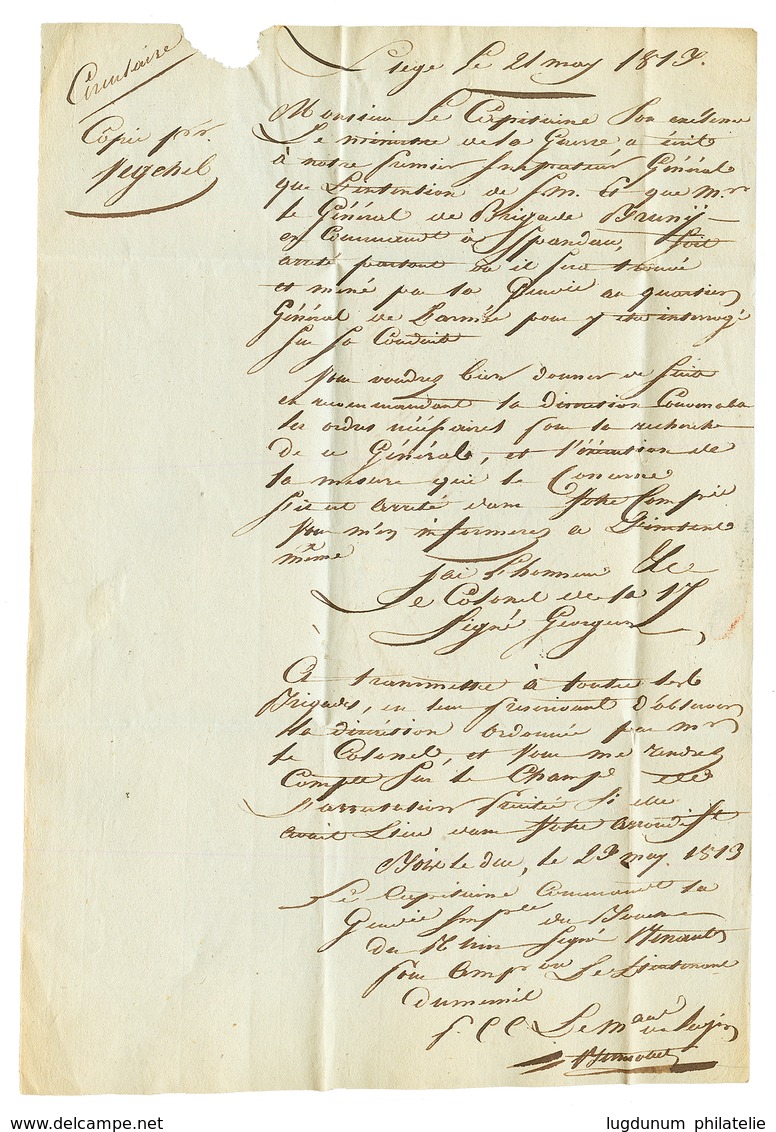 Circulaire
Copie pr.
Veychel
Liege le 21 may 1813.
Monsieur Le Capitaine Son exelence
Le ministre de la Guerre a écrit
à notre premier Inspecteur Général
que L'intention de S.M. Est que Mr
le Général de Brigade Bruny
en Commandt à Spandau, soit
arreté partout ou il sera trouvé
et mené par la Gendie au quartier
Général de L'armée pour y etre interrogé
sur sa Conduite
Vous voudrez bien donner de suite
en recommandant la discretion Convenable
les ordres nécessaires pour la recherche
de ce Général, et l'éxécution de
la mesure qui le Concerne
S'il est arreté dans Votre Compie
Vous m'en informerez a L'instant
même
J'ai L'honneur &c
Le Colonel de la 17
Signé Georgeon
A transmettre à toutes les
Brigades, en leur prescrivant d'observer
la discrétion Ordonnée par Mr
le Colonel, et Vous me rendrez
Compte Sur le Champ de
L'arrestation faite Si elle
avait Lieu dans Votre arrondist
Bois le duc, le 23 may 1813
Le Capitaine Commandt la
Gendie Imple des Bouches
du Rhin Signé
Pour Le Lieutenant
Dumenil
P. C C Le Mal
lugdunum philatelie